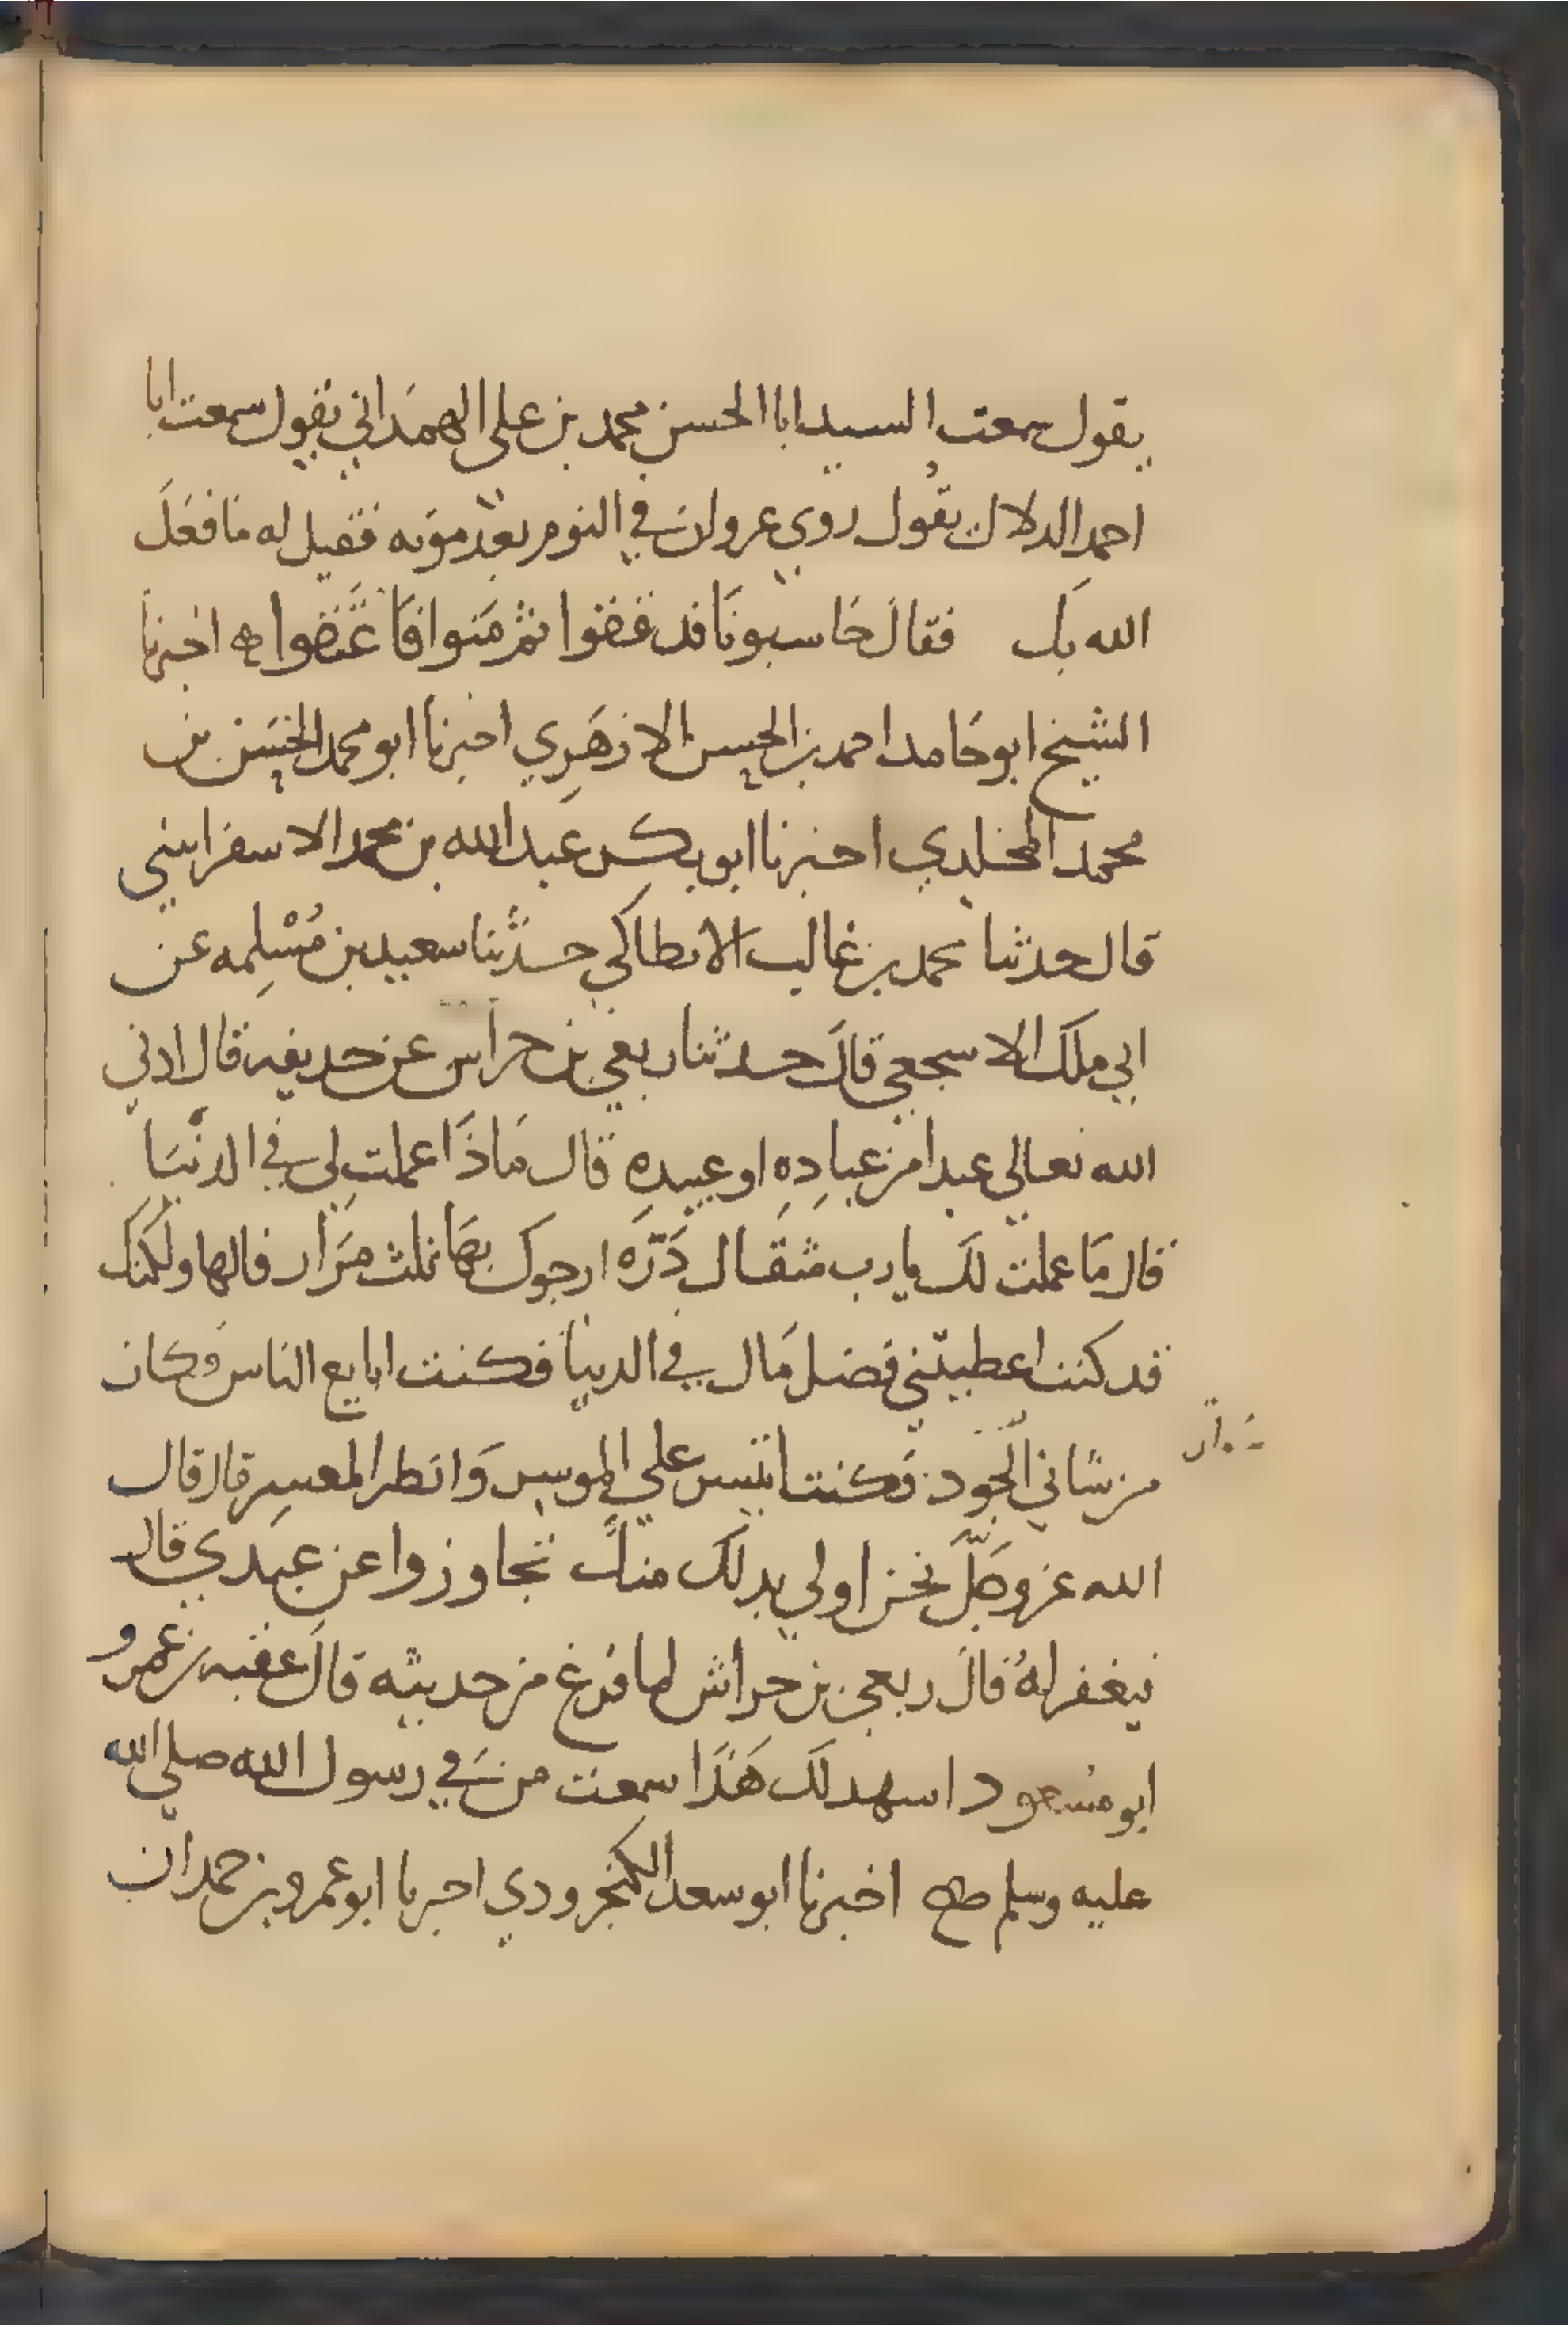 يقول سمعت السيد ابا الحسن محمد بن علي الهمداني يقول سمعت ابا
احمد الدلال يقول روي عروان في النوم بعد موته فقيل له ما فعل
الله بك فقال حاسبونا فدققوا ثم منوا فاعتقوا ه اخبرنا
الشيخ ابو حامد احمد بن الحسن الازهري اخبرنا ابو محمد الحسن بن
محمد المخلدي اخبرنا ابو بكر عبد الله بن محمد الاسفرايني
قال حدثنا محمد بن غالب الانطاكي حدثنا سعيد بن مُسْلِمه عن
ابي ملك الاسجعي قال حدثنا ربعي بن حراس عن حديفه قال ادني
الله تعالى عبدا من عباده او عبيده قال ماذا عملت لي في الدنيا
قال ما عملت لك يا رب مثقال ذره ارجوك بها ثلث مرار قالها ولكنك
قد كنت اعطيتني فضل مال في الدنيا فكنت ابايع الناس وكان
من شاني الجود فكنت ايسر على الموسر وانظر المعسر قال قال
الله عز وجل نحن اولي بدلك منك تجاوزوا عن عبدي قال
فيغفر له قال ربعي بن حراش لما فرغ من حديثه قال عقبه بن عمرو
ابو مسعود اسهد لك هذا سمعت من في رسول الله صلى الله
عليه وسلم اخبرنا ابو سعد الكنجرودي اخبرنا ابو عمرو بن حمدان